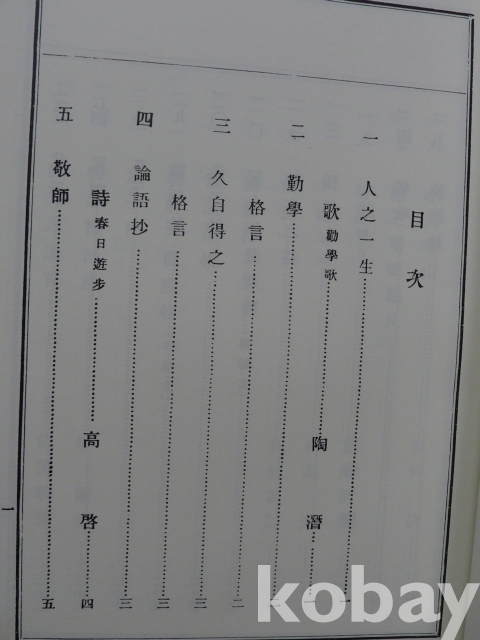 目次
一 人之一生 一
歌 勸學歌 陶潛 一
二 勤學 一
格言 二
三 久自得之 三
格言 三
四 論語抄 三
詩 春日遊步 高啓 四
五 敬師 五
一
kobay